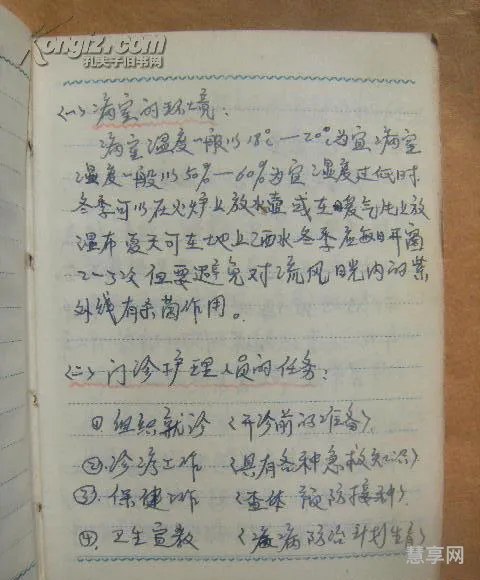 Kongfz.com
孔夫子旧书网
<一>病室的环境:
病室温度一般以18℃—20℃为宜病室
湿度一般以50%—60%为宜湿度过低时
冬季可以在火炉上放水壶或在暖气片上放
湿布夏天可在地上洒水冬季应每日开窗
2—3次但要避免对流风日光内的紫
外线有杀菌作用。
<二>门诊护理人员的任务:
①组织就诊<开诊前的准备>.
②.诊疗工作<具有各种急救知识>
③.保健工作<查体 预防接种>.
④.卫生宣教<疾病防治计划生育>
慧享网